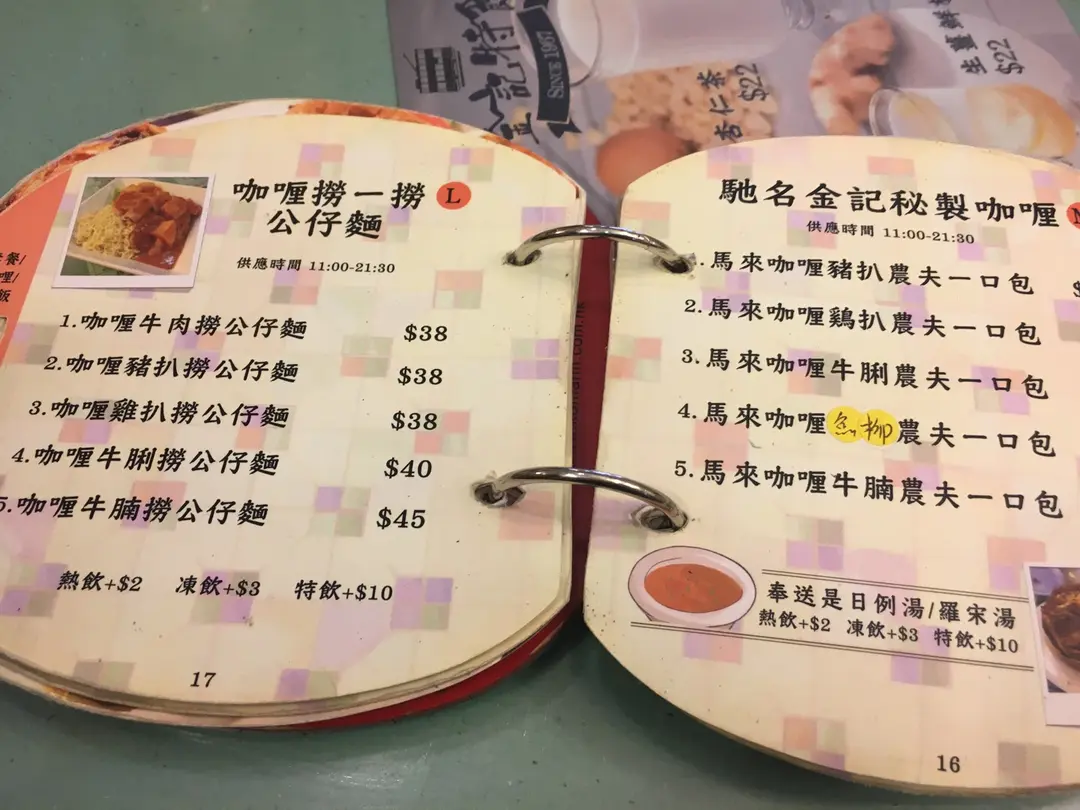 金記將軍
SINCE 1967
杏仁茶
$22
生薑鮮
$22
咖喱撈一撈 L
公仔麵
供應時間 11:00-21:30
1.咖喱牛肉撈公仔麵 $38
2.咖喱豬扒撈公仔麵 $38
3.咖喱雞扒撈公仔麵 $38
4.咖喱牛脷撈公仔麵 $40
5.咖喱牛腩撈公仔麵 $45
熱飲+$2 凍飲+$3 特飲+$10
17
餐/
喱/
飯
馳名金記秘製咖喱
供應時間 11:00-21:30
馬來咖喱豬扒農夫一口包
2.馬來咖喱鷄扒農夫一口包
3.馬來咖喱牛脷農夫一口包
4.馬來咖喱魚柳農夫一口包
5.馬來咖喱牛腩農夫一口包
奉送是日例湯/羅宋湯
熱飲+$2 凍飲+$3 特飲+$10
16